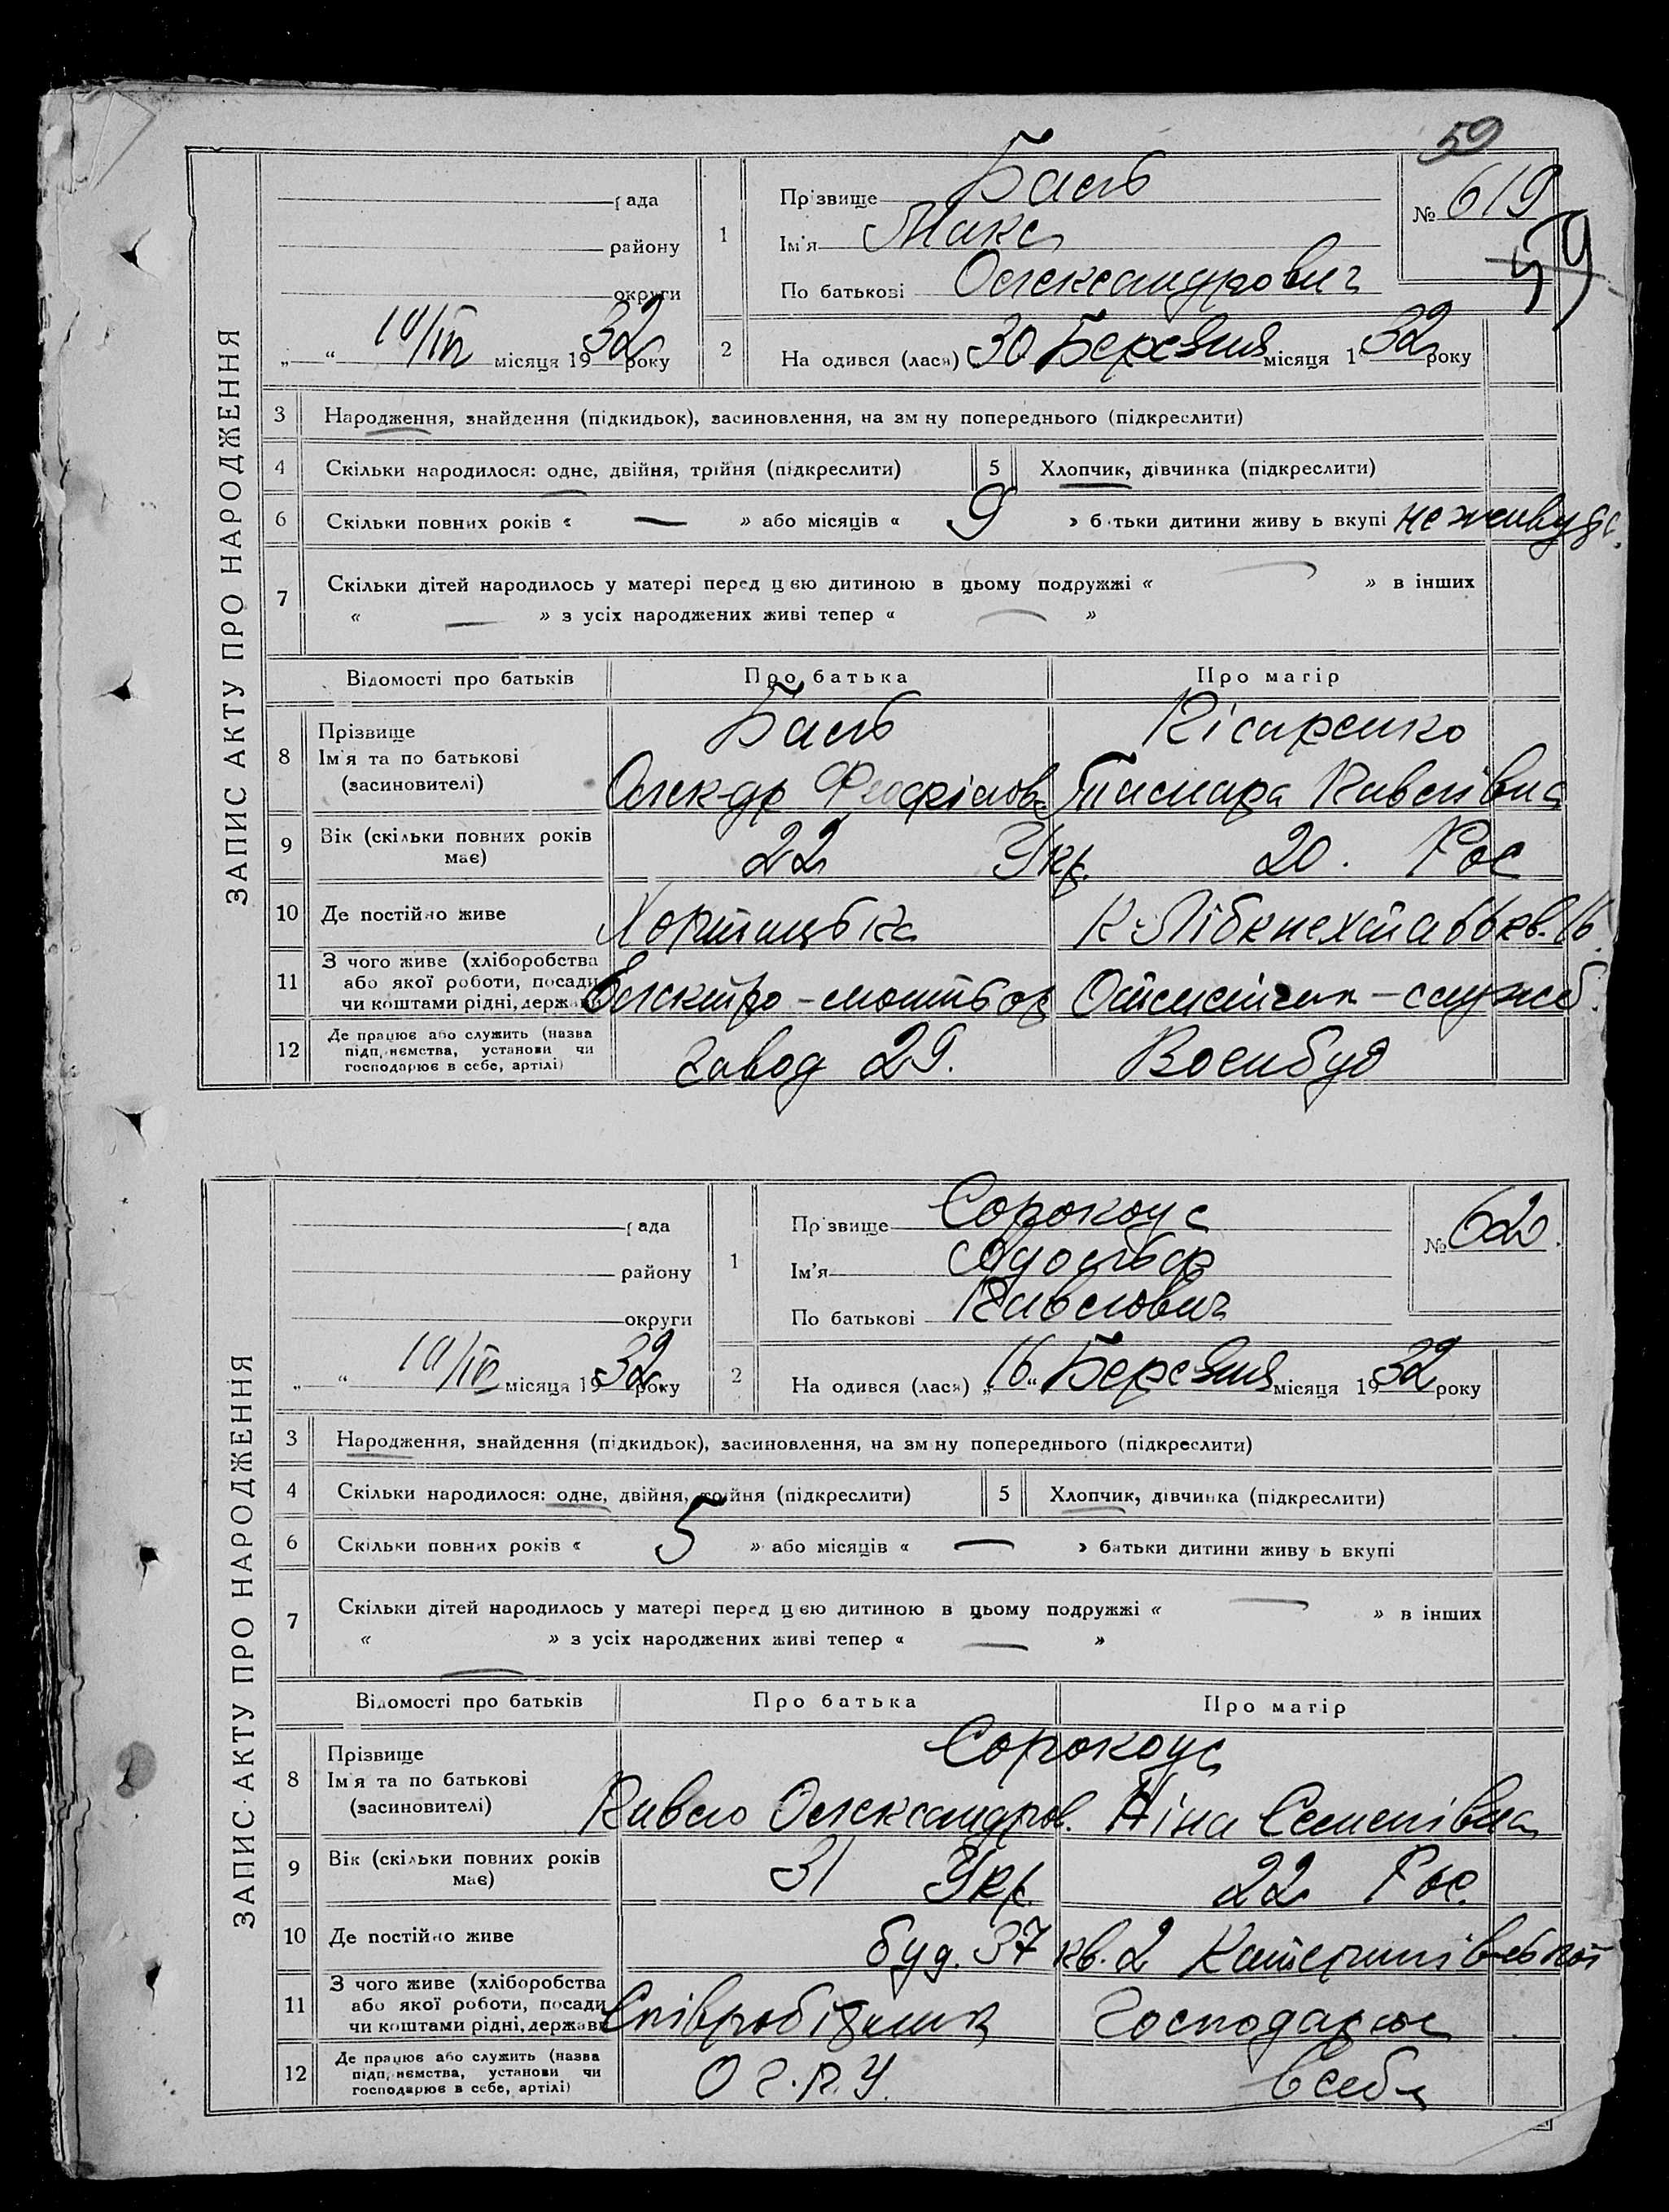 59
ЗАПИС АКТУ ПРО НАРОДЖЕННЯ
рада
району
округи
„ “ 10/IV місяця 1932 року
1
Прізвище Бась
Ім'я Макс
По батькові Олександрович
№ 619
59
2
На одився (лася) 30 Березня місяця 1 32 року
3 Народження, знайдення (підкидьок), засиновлення, на зм ну попереднього (підкреслити)
4 Скільки народилося: одне, двійня, трійня (підкреслити) 5 Хлопчик, дівчинка (підкреслити)
6 Скільки повних років « — » або місяців « 9 » б тьки дитини живу ь вкупі не живуть
7 Скільки дітей народилось у матері перед ц ею дитиною в цьому подружжі « — » в інших
« — » з усіх народжених живі тепер « — »
Відомості про батьків Про батька Про матір
8 Прізвище
Ім'я та по батькові
(засиновителі)
Бась Кісаренко
Олек-др Феофілов. Тамара Павлівна
9 Вік (скільки повних років
має)
22 Укр. 20. Рос
10 Де постійно живе Хортицька К-Лібкнехта 66 кв. 16.
11 З чого живе (хліборобства
або якої роботи, посади
чи коштами рідні, держави
Електро-монтьор службов.
12 Де працює або служить (назва
підприємства, установи чи
господарює в себе, артілі)
завод 29. Воєнбуд
ЗАПИС АКТУ ПРО НАРОДЖЕННЯ
рада
району
округи
„ “ 10/IV місяця 1932 року
1
Прізвище Сорокоус
Ім'я Адольф
По батькові Павлович
№ 620.
2
На одився (лася) „16“ Березня місяця 1932 року
3 Народження, знайдення (підкидьок), засиновлення, на зм ну попереднього (підкреслити)
4 Скільки народилося: одне, двійня, трійня (підкреслити) 5 Хлопчик, дівчинка (підкреслити)
6 Скільки повних років « 5 » або місяців « — » батьки дитини живу ь вкупі
7 Скільки дітей народилось у матері перед ц ею дитиною в цьому подружжі « — » в інших
« — » з усіх народжених живі тепер « — »
Відомості про батьків Про батька Про матір
8 Прізвище
Ім'я та по батькові
(засиновителі)
Сорокоус
Павло Олександров. Ніна Семенівна
9 Вік (скільки повних років
має)
31 Укр. 22 Рос.
10 Де постійно живе буд. 37 кв. 2 Катеринівської
11 З чого живе (хліборобства
або якої роботи, посади
чи коштами рідні, держави
Співробітник Господарює
12 Де працює або служить (назва
підприємства, установи чи
господарює в себе, артілі)
О Г.П.У. в себе